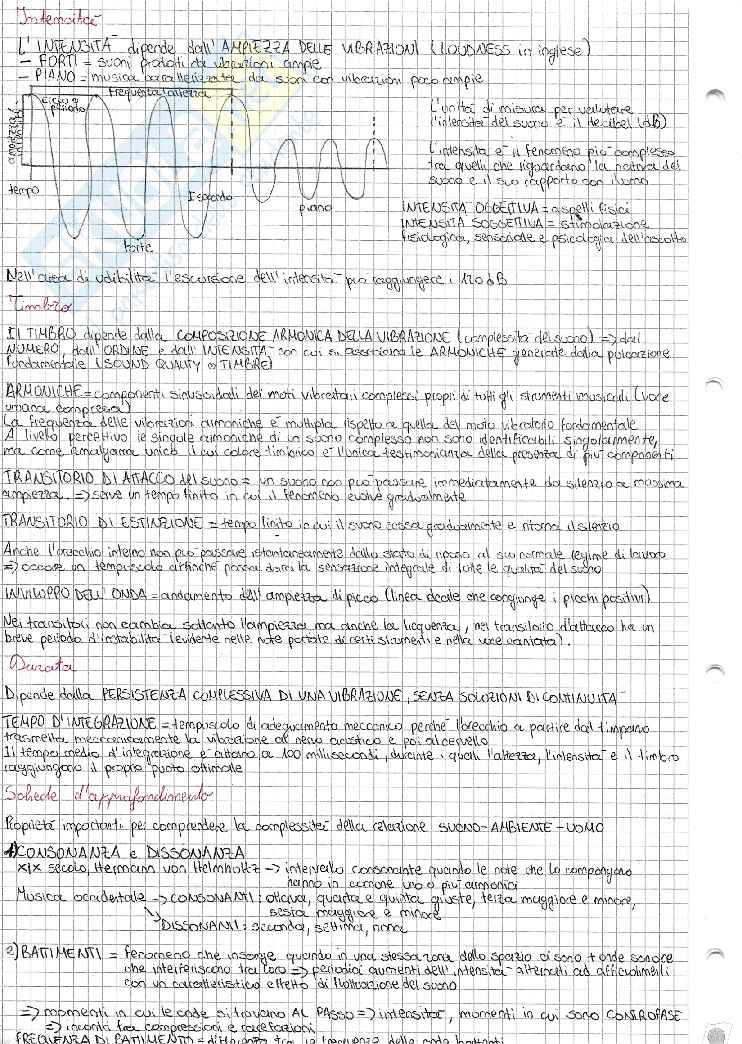 Intensità
L'INTENSITÀ dipende dall'AMPIEZZA DELLE VIBRAZIONI (LOUDNESS in inglese)
- FORTI = suoni prodotti da vibrazioni ampie
- PIANO = musica caratterizzata da suoni con vibrazioni poco ampie
frequenza/altezza
ciclo o periodo
ampiezza/
tempo
I sfondo
forte
piano
L'unità di misura per valutare
l'intensità del suono è il decibel (dB)
L'intensità è il fenomeno più complesso
tra quelli che riguardano la natura del
suono e il suo rapporto con l'uomo
INTENSITÀ OGGETTIVA = aspetti fisici
INTENSITÀ SOGGETTIVA = stimolazione
fisiologica, sensoriale e psicologica dell'ascolto
Nell'area di udibilità l'escursione dell'intensità può raggiungere i 120 dB
Timbro
Il TIMBRO dipende dalla COMPOSIZIONE ARMONICA DELLA VIBRAZIONE (complessità del suono) => dal
NUMERO, dall'ORDINE e dall'INTENSITÀ con cui si associano le ARMONICHE generate dalla pulsazione
fondamentale (SOUND QUALITY o TIMBRE)
ARMONICHE = componenti sinusoidali dei moti vibratori complessi propri di tutti gli strumenti musicali (voce
umana compresa)
La frequenza delle vibrazioni armoniche è multipla rispetto a quella del moto vibratorio fondamentale
A livello percettivo le singole armoniche di un suono complesso non sono identificabili singolarmente,
ma come amalgama unico il cui colore timbrico è l'unica testimonianza della presenza di più componenti
TRANSITORIO DI ATTACCO del suono = un suono non può passare immediatamente da silenzio a massima
ampiezza => serve un tempo finito in cui il fenomeno evolve gradualmente
TRANSITORIO DI ESTINZIONE = tempo finito in cui il suono cessa gradualmente e ritorna il silenzio
Anche l'orecchio interno non può passare istantaneamente dallo stato di riposo al suo normale regime di lavoro
=> occorre un tempuscolo affinché possa darci la sensazione integrale di tutte le qualità del suono
INVILUPPO DELL'ONDA = andamento dell'ampiezza di picco (linea ideale che congiunge i picchi positivi)
Nei transitori non cambia soltanto l'ampiezza ma anche la frequenza, nel transitorio d'attacco ha un
breve periodo d'instabilità (evidente nelle note portate di certi strumenti e nella voce cantata).
Durata
Dipende dalla PERSISTENZA COMPLESSIVA DI UNA VIBRAZIONE, SENZA SOLUZIONI DI CONTINUITÀ
TEMPO D'INTEGRAZIONE = tempuscolo di adeguamento meccanico perché l'orecchio a partire dal timpano
trasmetta meccanicamente la vibrazione al nervo acustico e poi al cervello
Il tempo medio d'integrazione è attorno a 100 millisecondi, durante i quali l'altezza, l'intensità e il timbro
raggiungono il proprio punto ottimale
Schede d'approfondimento
Proprietà importanti per comprendere la complessità della relazione SUONO-AMBIENTE-UOMO
1) CONSONANZA e DISSONANZA
XIX secolo, Hermann von Helmholtz -> intervallo consonante quando le note che lo compongono
hanno in comune uno o più armonici
Musica occidentale -> CONSONANTI: ottava, quarta e quinta giuste, terza maggiore e minore,
sesta maggiore e minore
DISSONANTI: seconda, settima, nona
2) BATTIMENTI = fenomeno che insorge quando in una stessa zona dello spazio ci sono + onde sonore
che interferiscono tra loro => periodici aumenti dell'intensità alternati ad affievolimenti
con un caratteristico effetto di fluttuazione del suono
=> momenti in cui le onde si trovano AL PASSO => intensità, momenti in cui sono CONTROFASE
=> incontri fra compressioni e rarefazioni
FREQUENZA DI BATTIMENTO = differenza tra le frequenze delle onde